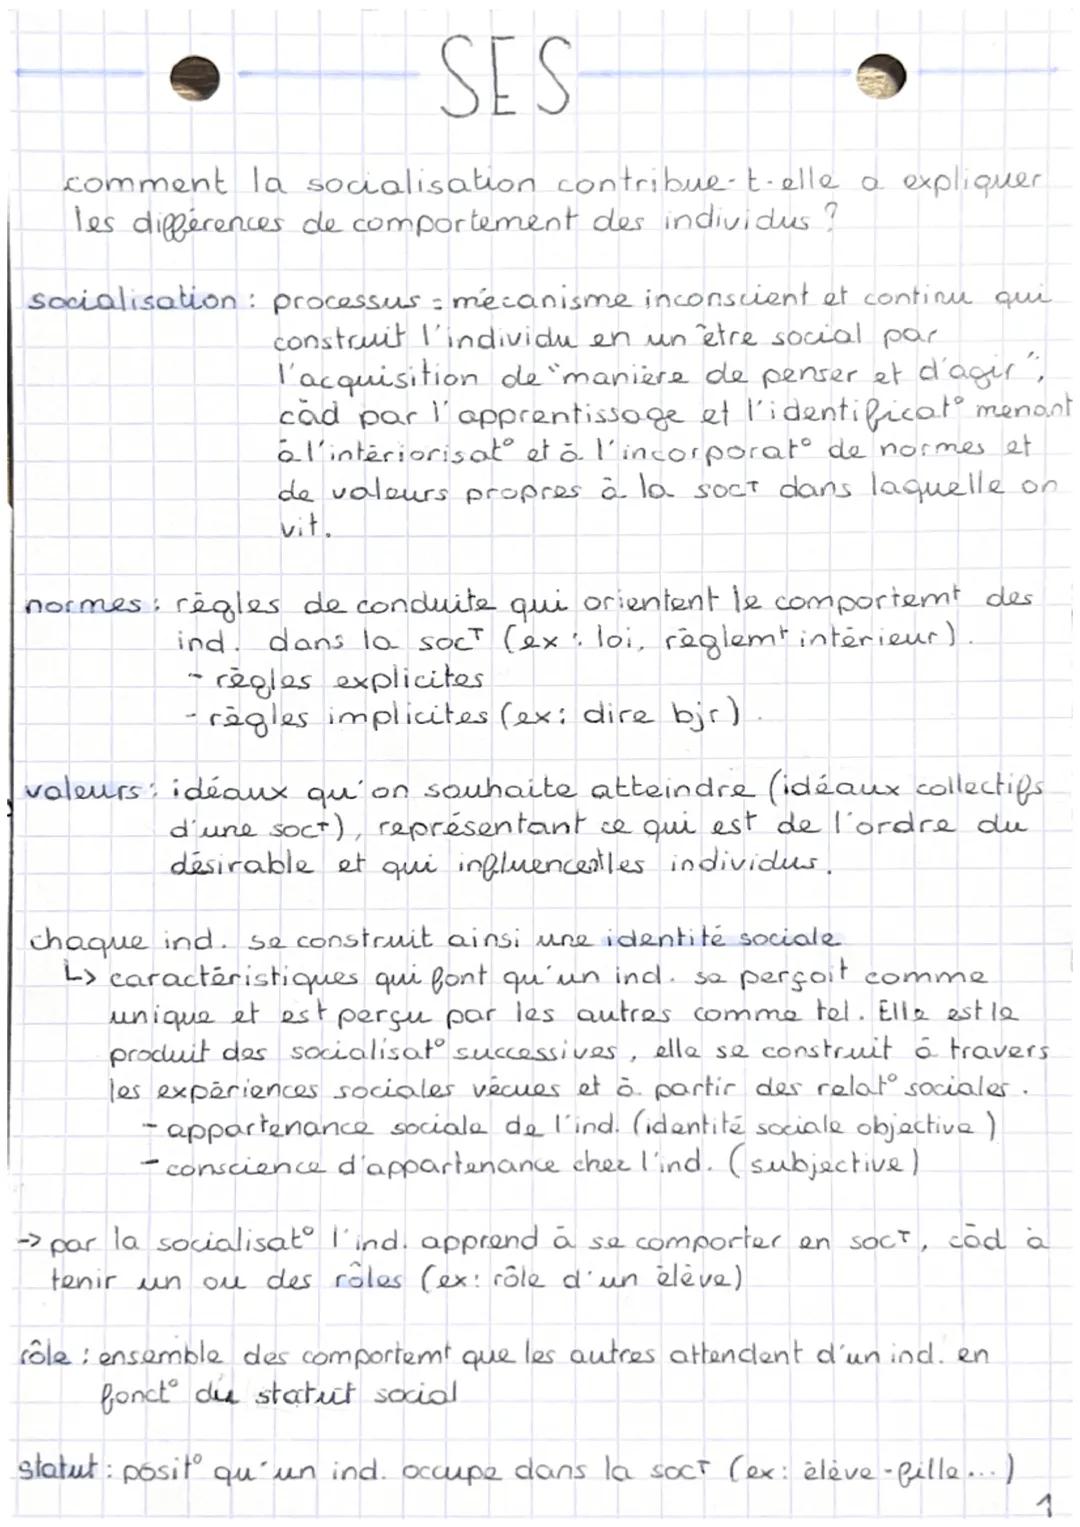 SES
comment la socialisation contribue-t-elle a expliquer
les différences de comportement des individus ?
socialisation : processus = mécanisme inconscient et continu qui
construit l'individu en un être social par
l'acquisition de "manière de penser et d'agir",
càd par l'apprentissage et l'identificat° menant
à l'intériorisat° et à l'incorporat° de normes et
de valeurs propres à la socT dans laquelle on
vit.
normes : règles de conduite qui orientent le comportemt des
ind. dans la socT (ex : loi, règlemt intérieur).
- règles explicites
- règles implicites (ex : dire bjr).
valeurs : idéaux qu'on souhaite atteindre (idéaux collectifs
d'une socT), représentant ce qui est de l'ordre du
désirable et qui influencent les individus.
chaque ind. se construit ainsi une identité sociale
↳ caractéristiques qui font qu'un ind. se perçoit comme
unique et est perçu par les autres comme tel. Elle est le
produit des socialisat° successives, elle se construit à travers
les expériences sociales vécues et à partir des relat° sociales.
- appartenance sociale de l'ind. (identité sociale objective)
- conscience d'appartenance chez l'ind. (subjective)
-> par la socialisat° l'ind. apprend à se comporter en socT, càd à
tenir un ou des rôles (ex : rôle d'un élève)
rôle : ensemble des comportemt que les autres attendent d'un ind. en
fonct° du statut social
statut : posit° qu'un ind. occupe dans la socT (ex : élève - fille ...)
1